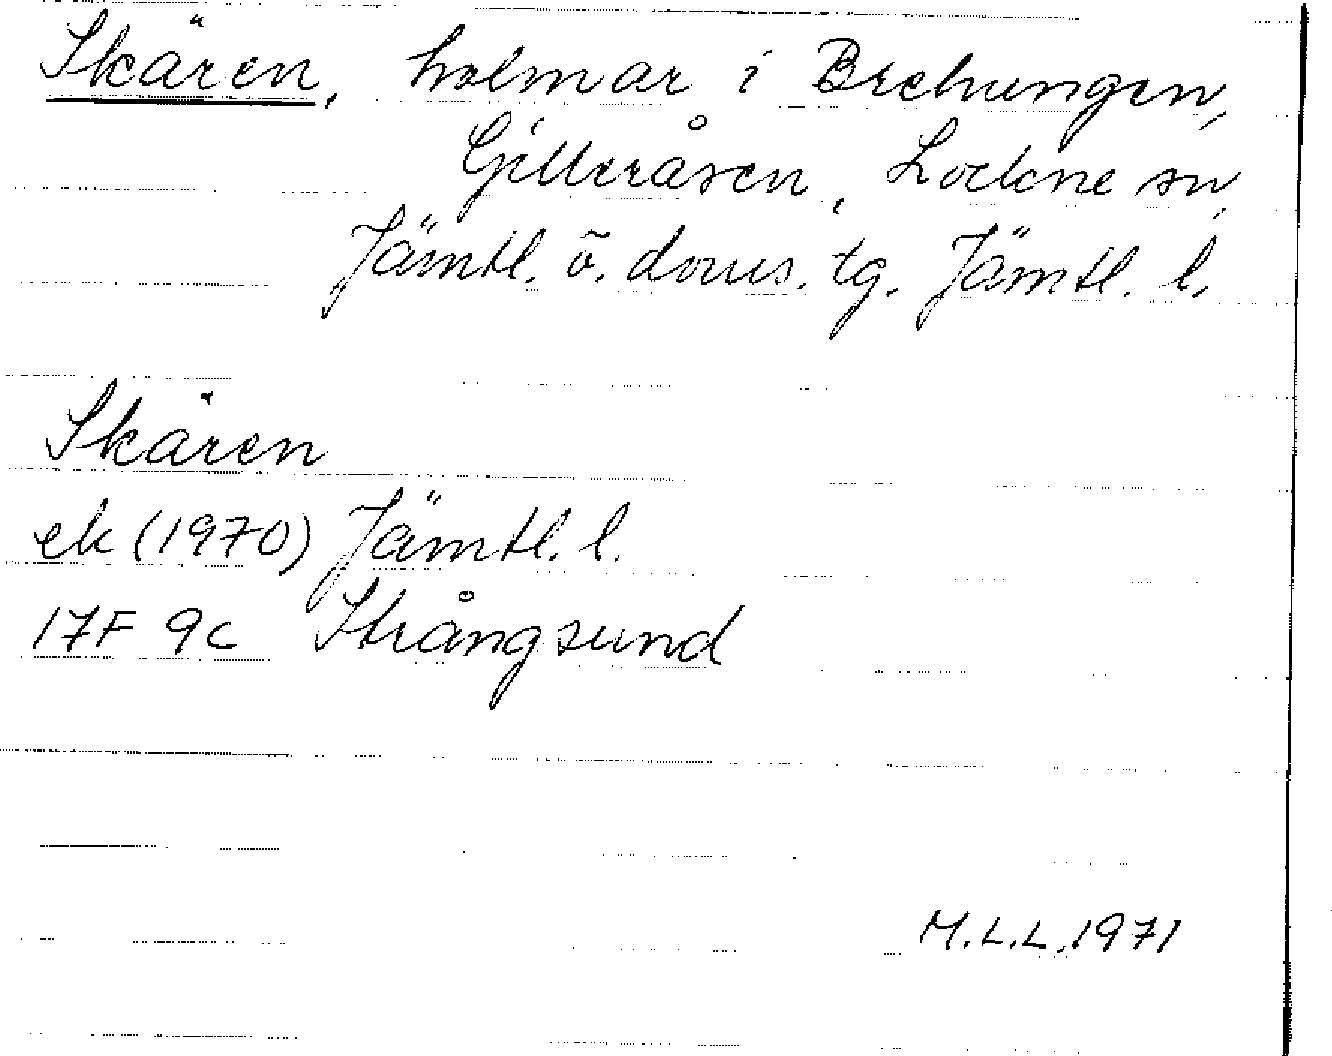 Skären, holmar i Brehungen,
Gilleråsen, Lockne sn,
Jämtl. ö. doms. tg. Jämtl. l.
Skären
ek (1970) Jämtl. l.
17F 9c Strångsund
M.L.L. 1971